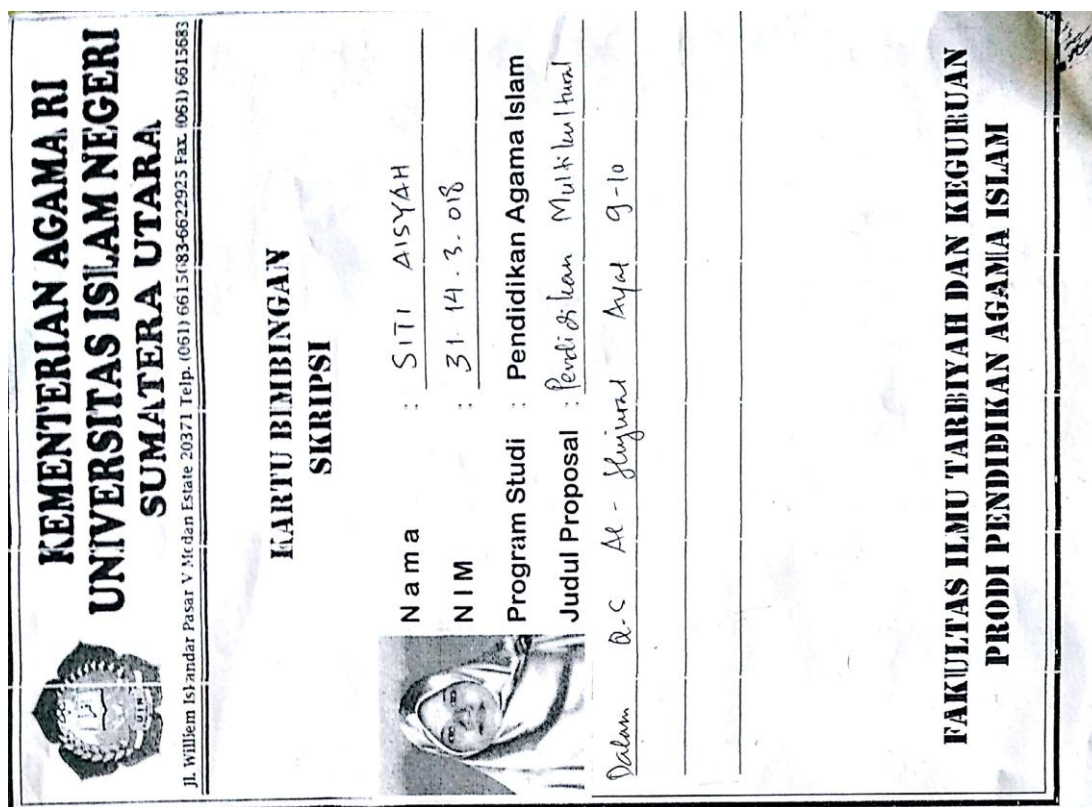 KEMENTERIAN AGAMA RI
UNIVERSITAS ISLAM NEGERI
SUMATERA UTARA
Jl. Williem Iskandar Pasar V Medan Estate 20371 Telp. (061) 6615683-6622925 Fax. (061) 6615683
KARTU BIMBINGAN
SKRIPSI
Nama : SITI AISYAH
NIM : 31.14.3.018
Program Studi : Pendidikan Agama Islam
Judul Proposal : Pendidikan Multikultural
Dalam Q.S Al-Hujurat Ayat 9-10
FAKULTAS ILMU TARBIYAH DAN KEGURUAN
PRODI PENDIDIKAN AGAMA ISLAM